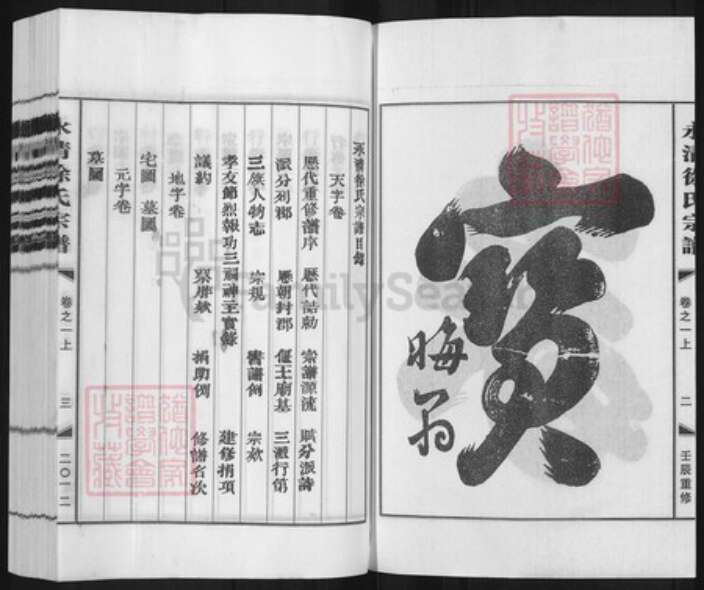 永清徐氏宗譜
卷之一上
二
壬辰重修
寶
晦翁
永清徐氏宗譜目錄
天字卷
歷代重修譜序 歷代誥勅 宗譜源流 賦分派詩
派分列郡 歷朝封郡 偃王廟基 三衢行第
三族人物志 宗規 書譜例 宗欵
孝友節烈報功三祠神主實錄 建修捐項
議約 禁胙欵 捐助例 修譜名次
地字卷
宅圖 墓圖
元字卷
墓圖
永清徐氏宗譜
卷之一上
三
二〇一二
FamilySearch